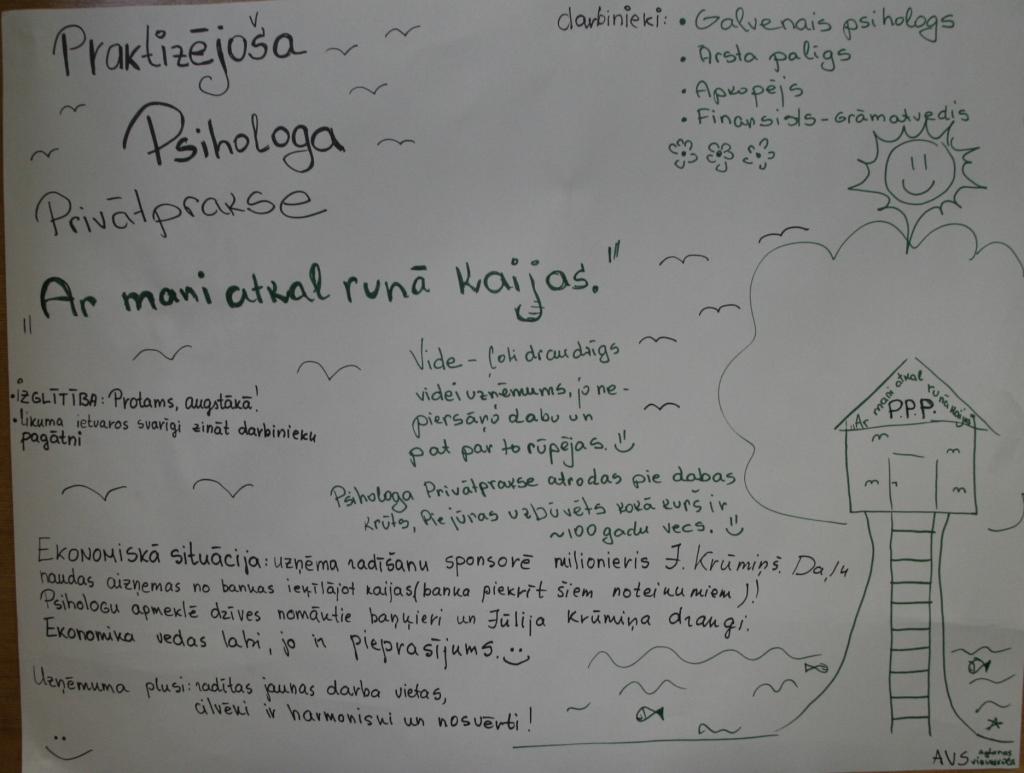 Praktizējoša
Psihologa
Privātprakse
„Ar mani atkal runā kaijas."
darbinieki: • Galvenais psihologs
• Arsta palīgs
• Apkopējs
• Finansists-Grāmatvedis
Vide - ļoti draudzīgs
videi uzņēmums, jo ne-
piersārņo dabu un
pat par to rūpējas.
• IZGLĪTĪBA: Protams, augstākā!
• likuma ietvaros svarīgi zināt darbinieku
pagātni
Psihologa Privātprakse atrodas pie dabas
krūts, Pie jūras uzbūvēts kokā kurš ir
~100 gadu vecs.
Ekonomiskā situācija: uzņēma radīšanu sponsorē milionieris J. Krūmiņš. Daļu
naudas aizņemas no bankas ieķīlājot kaijas (banka piekrīt šiem noteikumiem)!
Psihologu apmeklē dzīves nomāktie baņķieri un Jūlija Krūmiņa draugi.
Ekonomika vedas labi, jo ir pieprasījums.
Uzņēmuma plusi: radītas jaunas darba vietas,
cilvēki ir harmoniski un nosvērti!
"Ar mani atkal runā kaijas"
P.P.P.
AVS